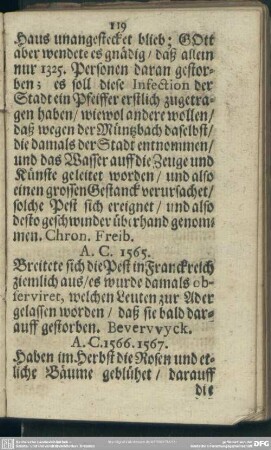 119
Haus unangestecket blieb: GOtt
aber wendete es gnädig / daß allein
nur 1325. Personen daran gestor-
ben; es soll diese Infection der
Stadt ein Pfeiffer erstlich zugetra-
gen haben / wiewol andere wollen /
daß wegen der Müntzbach daselbst /
die damals der Stadt entnommen /
und das Wasser auff die Zeuge und
Künste geleitet worden / und also
einen grossen Gestanck verursachet /
solche Pest sich ereignet / und also
desto geschwinder überhand genom-
men. Chron. Freib.
A. C. 1565.
Breitete sich die Pest in Franckreich
ziemlich aus / es wurde damals ob-
serviret, welchen Leuten zur Ader
gelassen worden / daß sie bald dar-
auff gestorben. Bevervvyck.
A. C. 1566. 1567.
Haben im Herbst die Rosen und et-
liche Bäume geblühet / darauff
die